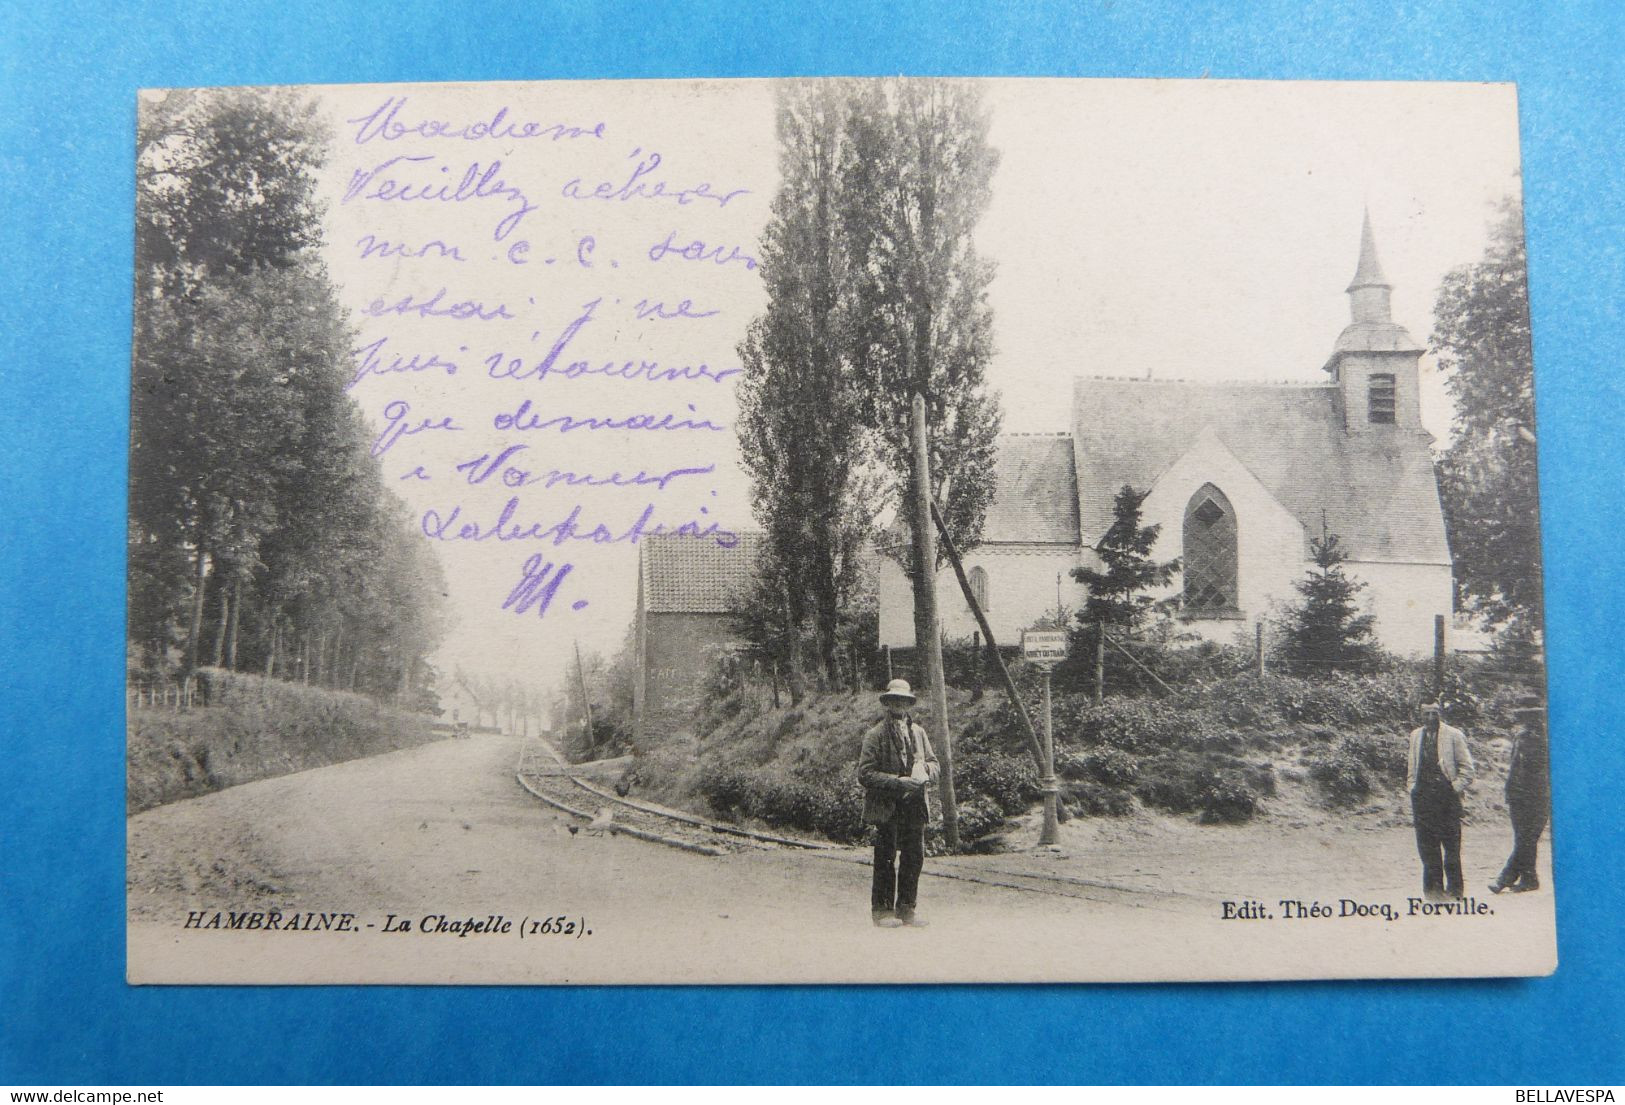 Madame
Veuillez achever
mon c. c. sans
essai, j. ne
puis retourner
que demain
à Namur
Salutations
M.
ARRÊT DU TRAM
HAMBRAINE. - La Chapelle (1652).
Edit. Théo Docq, Forville.
BELLAVESPA